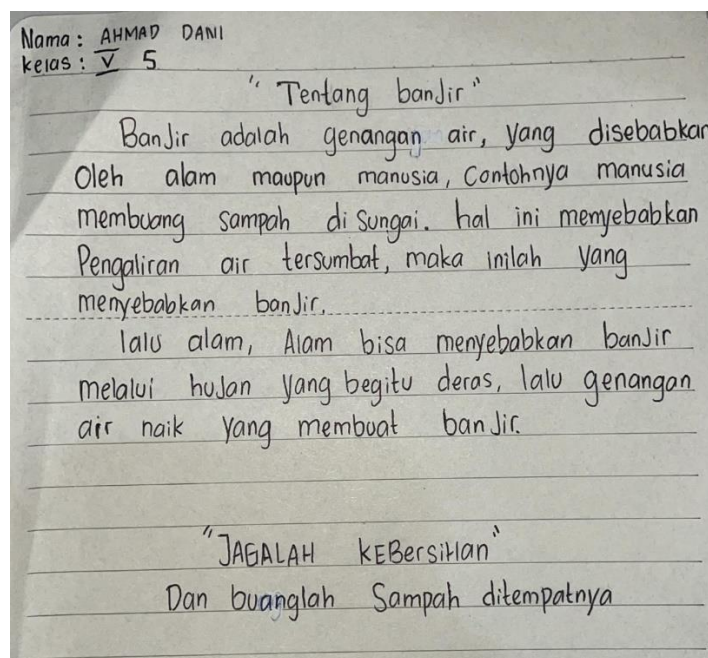 Nama : AHMAD DANI
kelas : V 5
" Tentang banJir "
BanJir adalah genangan air, yang disebabkan
Oleh alam maupun manusia, Contohnya manusia
membuang sampah di sungai. hal ini menyebabkan
Pengaliran air tersumbat, maka inilah yang
menyebabkan banJir.
lalu alam, Alam bisa menyebabkan banJir
melalui huJan yang begitu deras, lalu genangan
air naik yang membuat banJir.
"JAGALAH KEBersiHan"
Dan buanglah Sampah ditempatnya